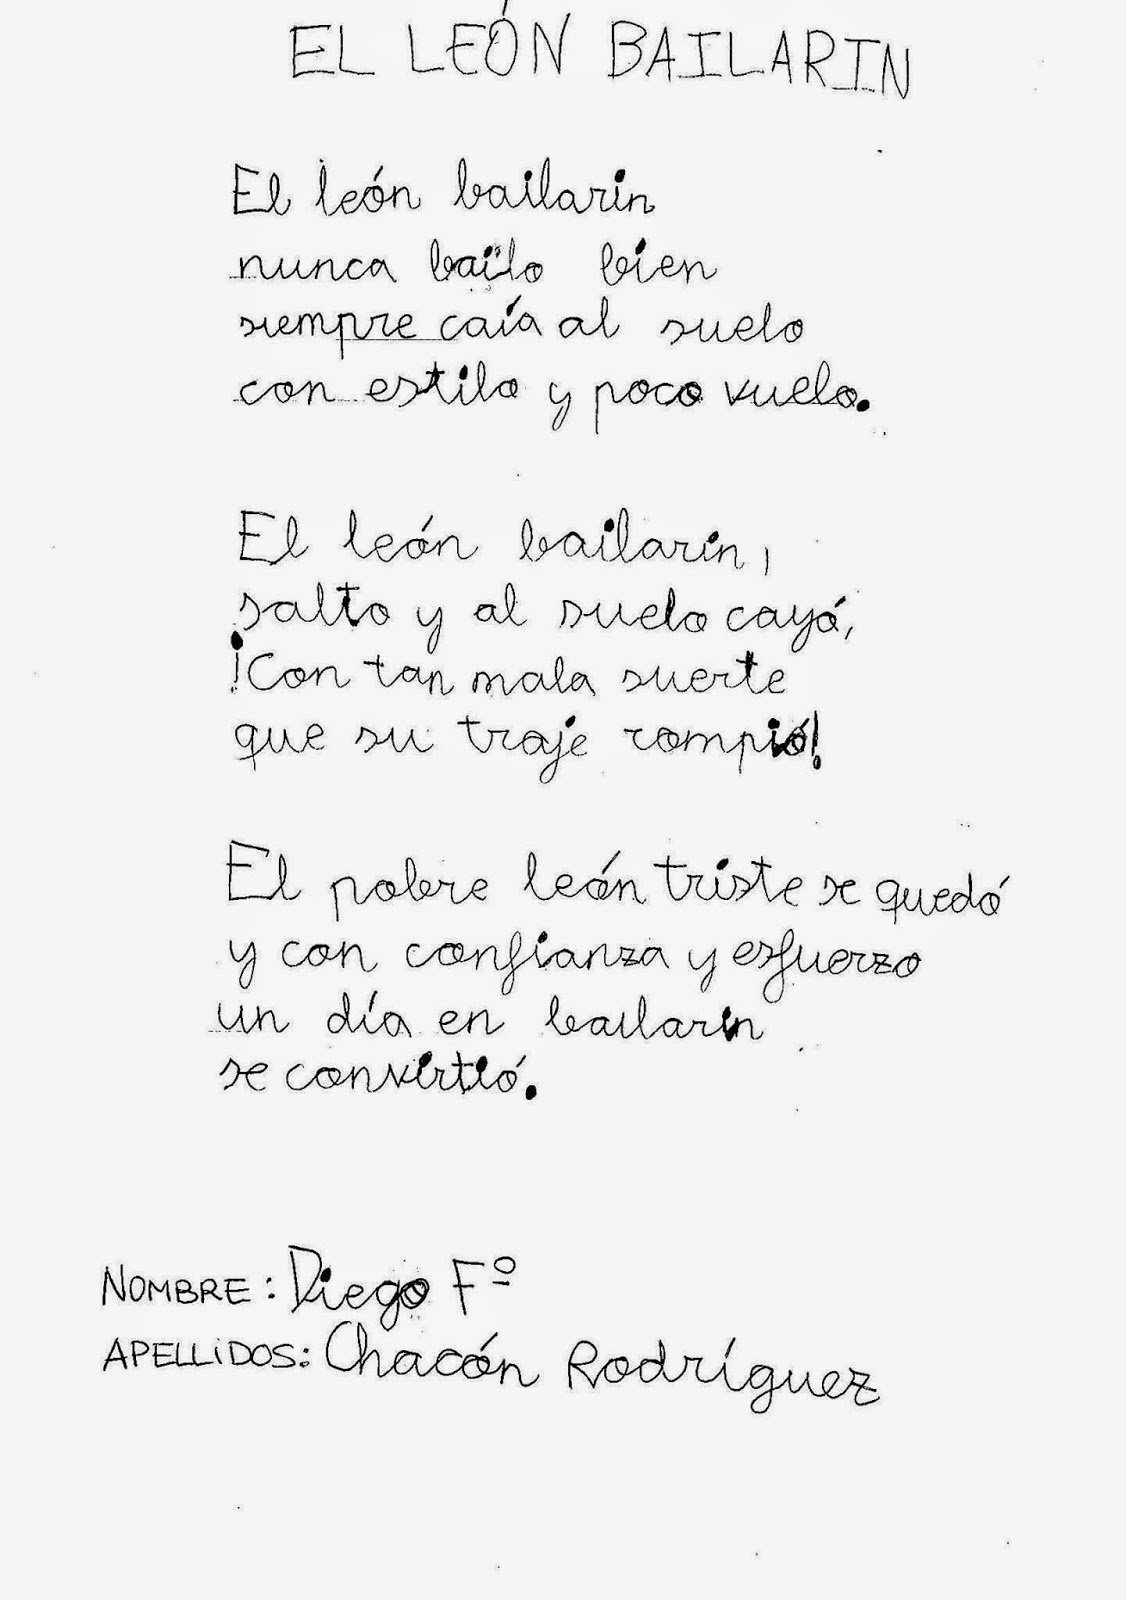 EL LEÓN BAILARIN
El león bailarin
nunca bailo bien
siempre caía al suelo
con estilo y poco vuelo.
El león bailarin,
salto y al suelo cayó,
¡Con tan mala suerte
que su traje rompió!
El pobre león triste se quedó
y con confianza y esfuerzo
un día en bailarin
se convirtió.
NOMBRE: Diego Fº
APELLIDOS: Chacón Rodríguez